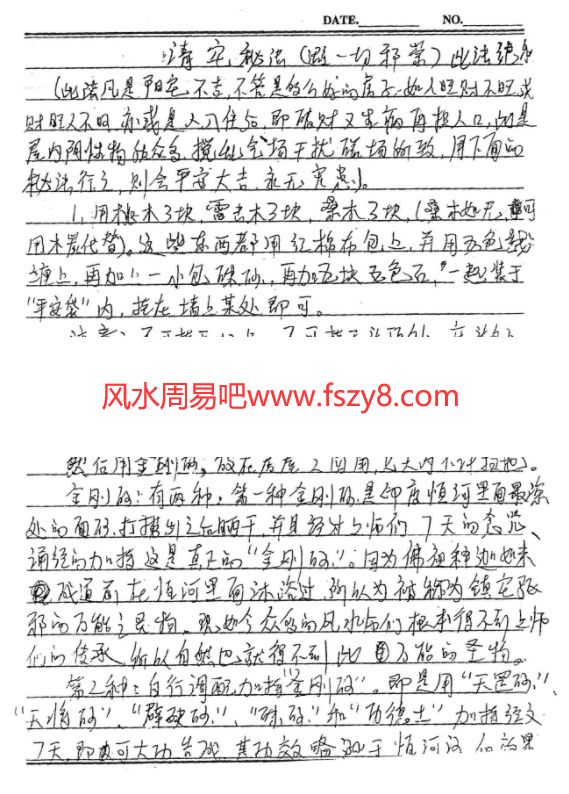 DATE.________ NO.________
清宅秘法（避一切邪崇）此法统和
（此法凡是阳宅不吉，不管是多么好的房子，如人旺财不旺或
财旺人不旺亦或是入住后，即破财又生病再损人口，此是
屋内阴性物的众多，搅乱气场干扰磁场所致，用下面的
秘法行之，则会平安大吉，永无灾患）。
1，用桃木3块，雷击木3块，桑木3块，（桑木如无，可
用木炭代替）。这些东西都用红棉布包上，并用五色线
缠上，再加一小包硃砂，再加五块五色石，一起装于
“平安袋”内，挂在墙上某处即可。
风水周易吧www.fszy8.com
然后用金刚砂，放在房屋之四周，七天内不许扫地）。
金刚砂：有两种，第一种金刚砂是印度恒河里面最深
处的面砂，打捞出之后晒干，并且经过上师们7天的念咒、
诵经的加持，这是真正的“金刚砂”。因为佛祖释迦如来
成道前在恒河里面沐浴过，所以为被称为镇宅驱
邪的万能之灵物。现如今众多的风水师们根本得不到上师
们的传承，所以自然也就得不到此万能的圣物。
第2种：自行调配加持“金刚砂”。即是用“天罡砂”、
“天将砂”、“辟硖砂”、“硃砂”和“功德土”加持经文
7天，即可大功告成，其功效略逊于恒河沙的效果